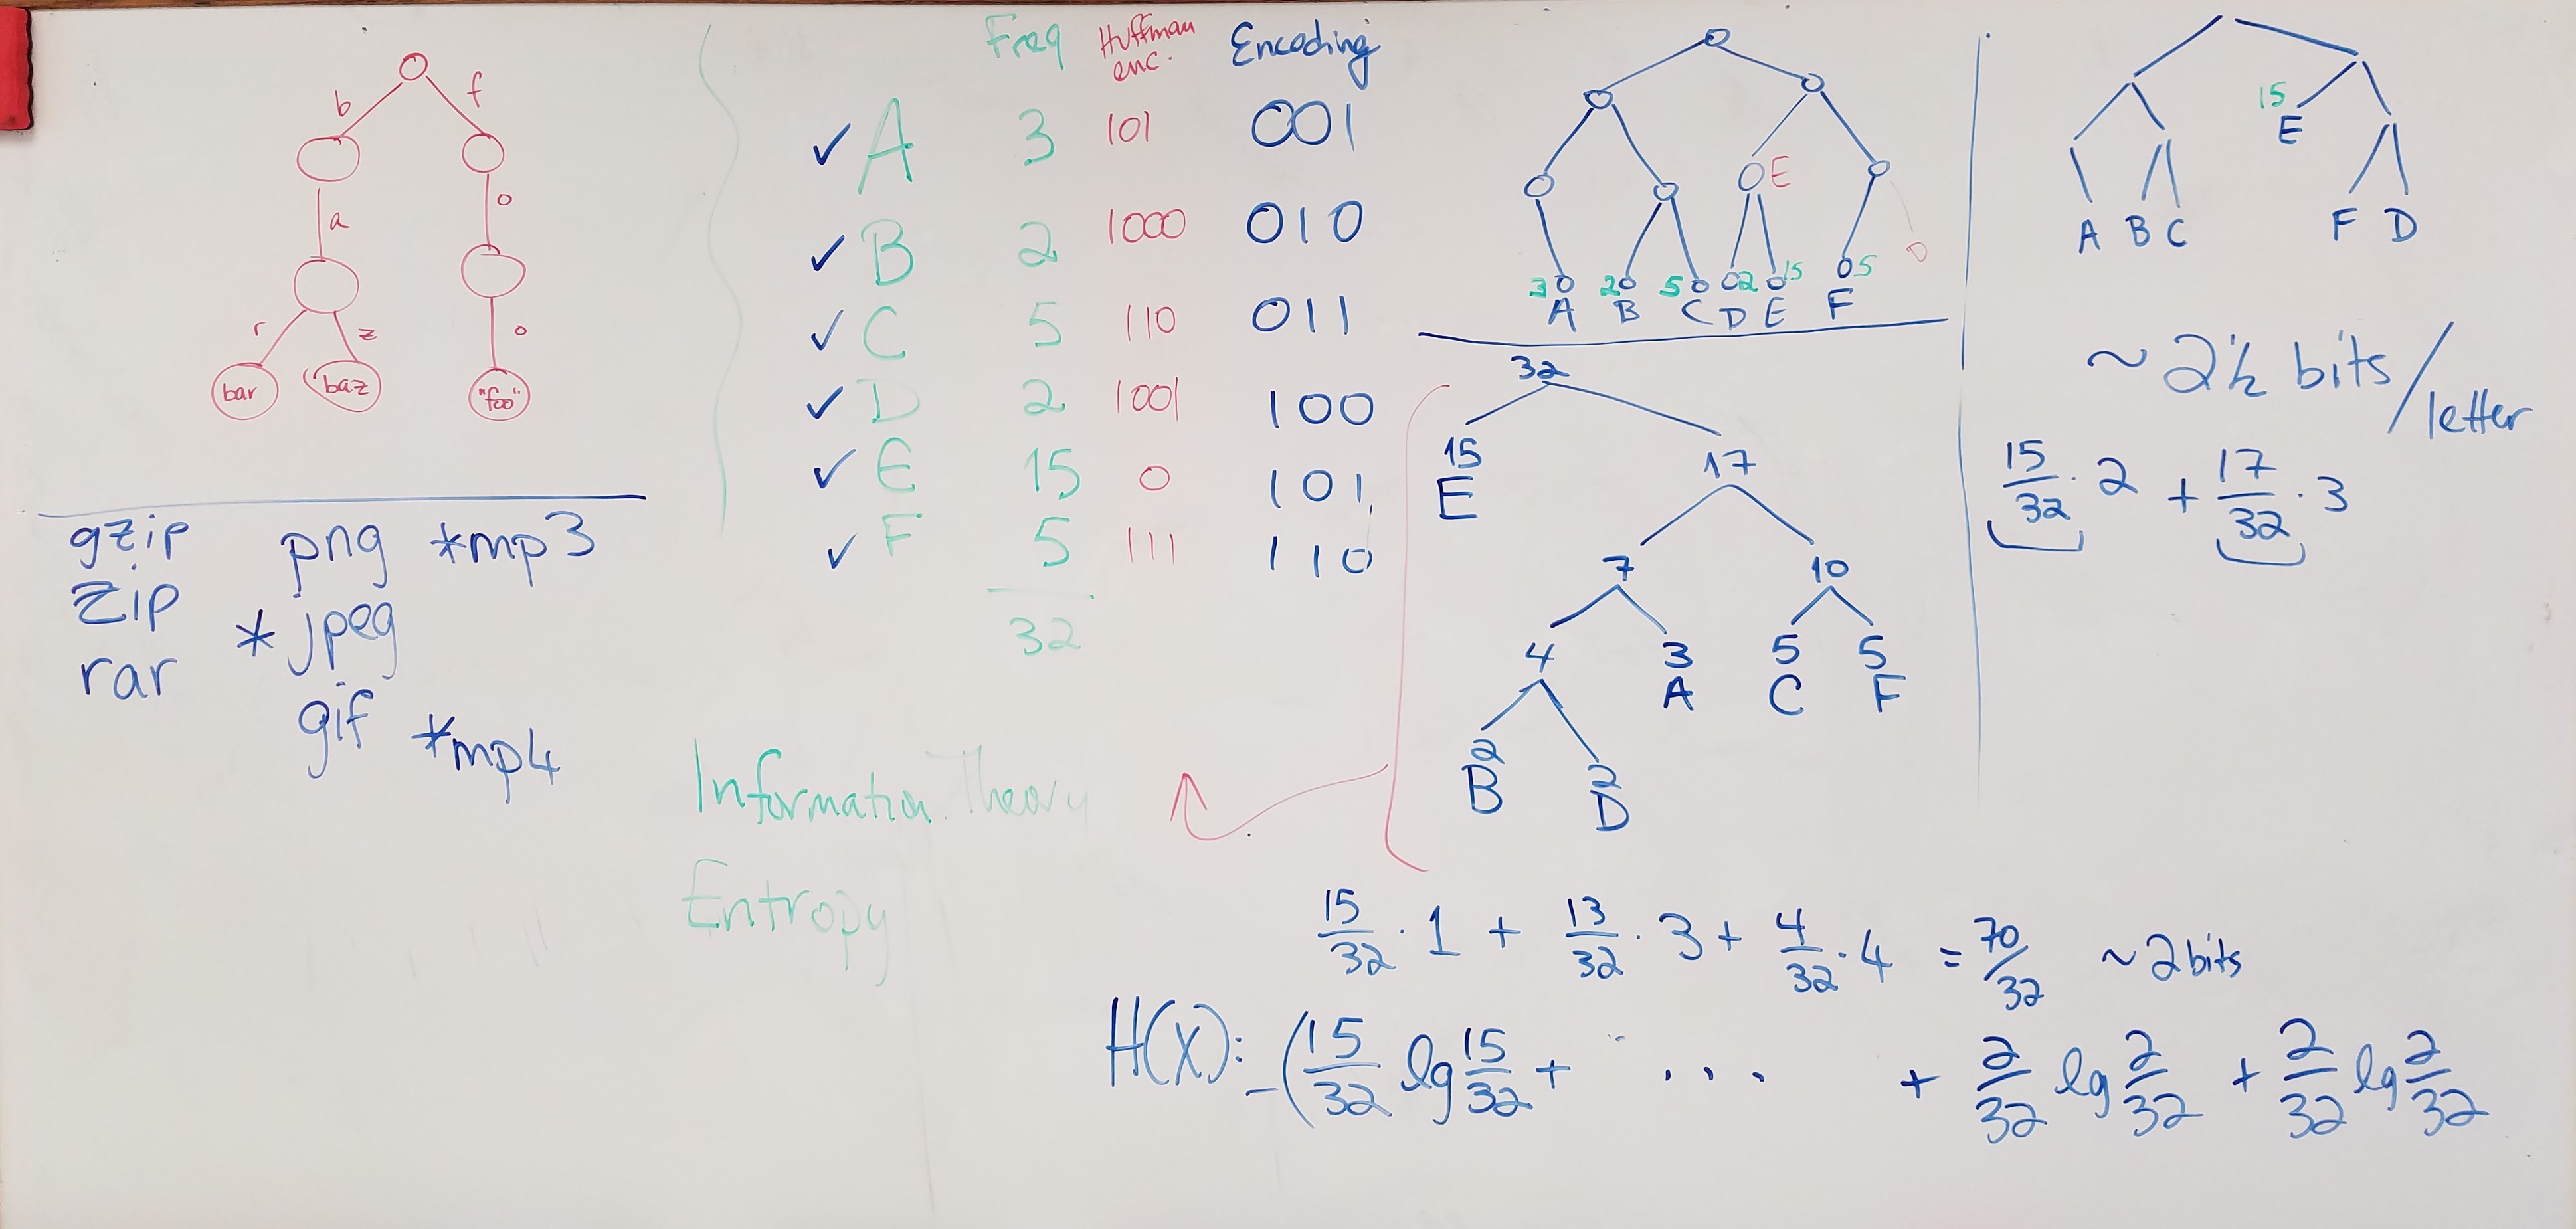 b f
a o
r z o
bar baz "foo"
gzip png *mp3
zip * jpeg
rar gif *mp4
Freq Huffman enc. Encoding
✓ A 3 101 001
✓ B 2 1000 010
✓ C 5 110 011
✓ D 2 1001 100
✓ E 15 0 101
✓ F 5 111 110
32
Information Theory
Entropy
E
3 2 5 2 15 5
A B C D E F
32
15 17
E
7 10
4 3 5 5
A C F
2 2
B D
15
E
A B C F D
~ 2½ bits/letter
15/32 · 2 + 17/32 · 3
15/32 · 1 + 13/32 · 3 + 4/32 · 4 = 70/32 ~2 bits
H(X): -(15/32 lg 15/32 + ... + 2/32 lg 2/32 + 2/32 lg 2/32